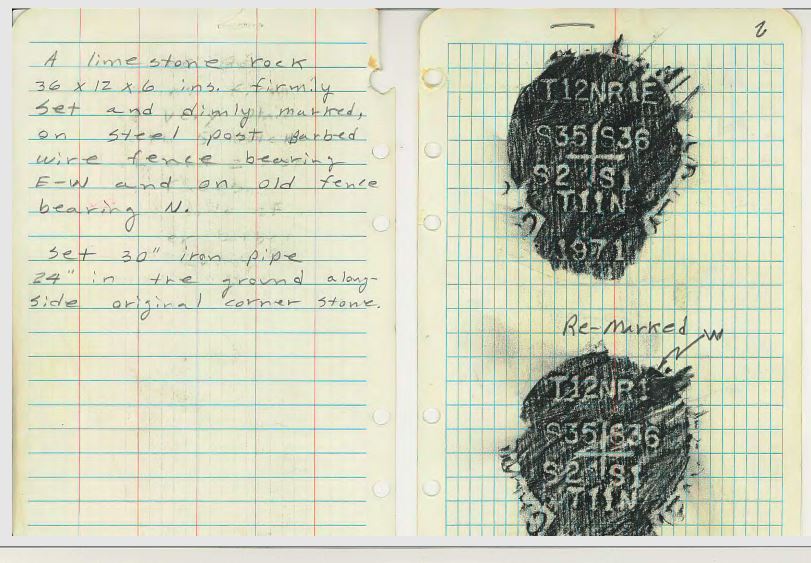 A limestone rock
36 x 12 x 6 ins. firmly
set and dimly marked,
on steel post Barbed
wire fence bearing
E-W and on old fence
bearing N.
Set 30" iron pipe
24" in the ground along-
side original corner stone.
2
T12NR1E
S35 S36
S2 S1
T11N
1971
Re-Marked
W
T12NR1
S35 S36
S2 S1
T11N